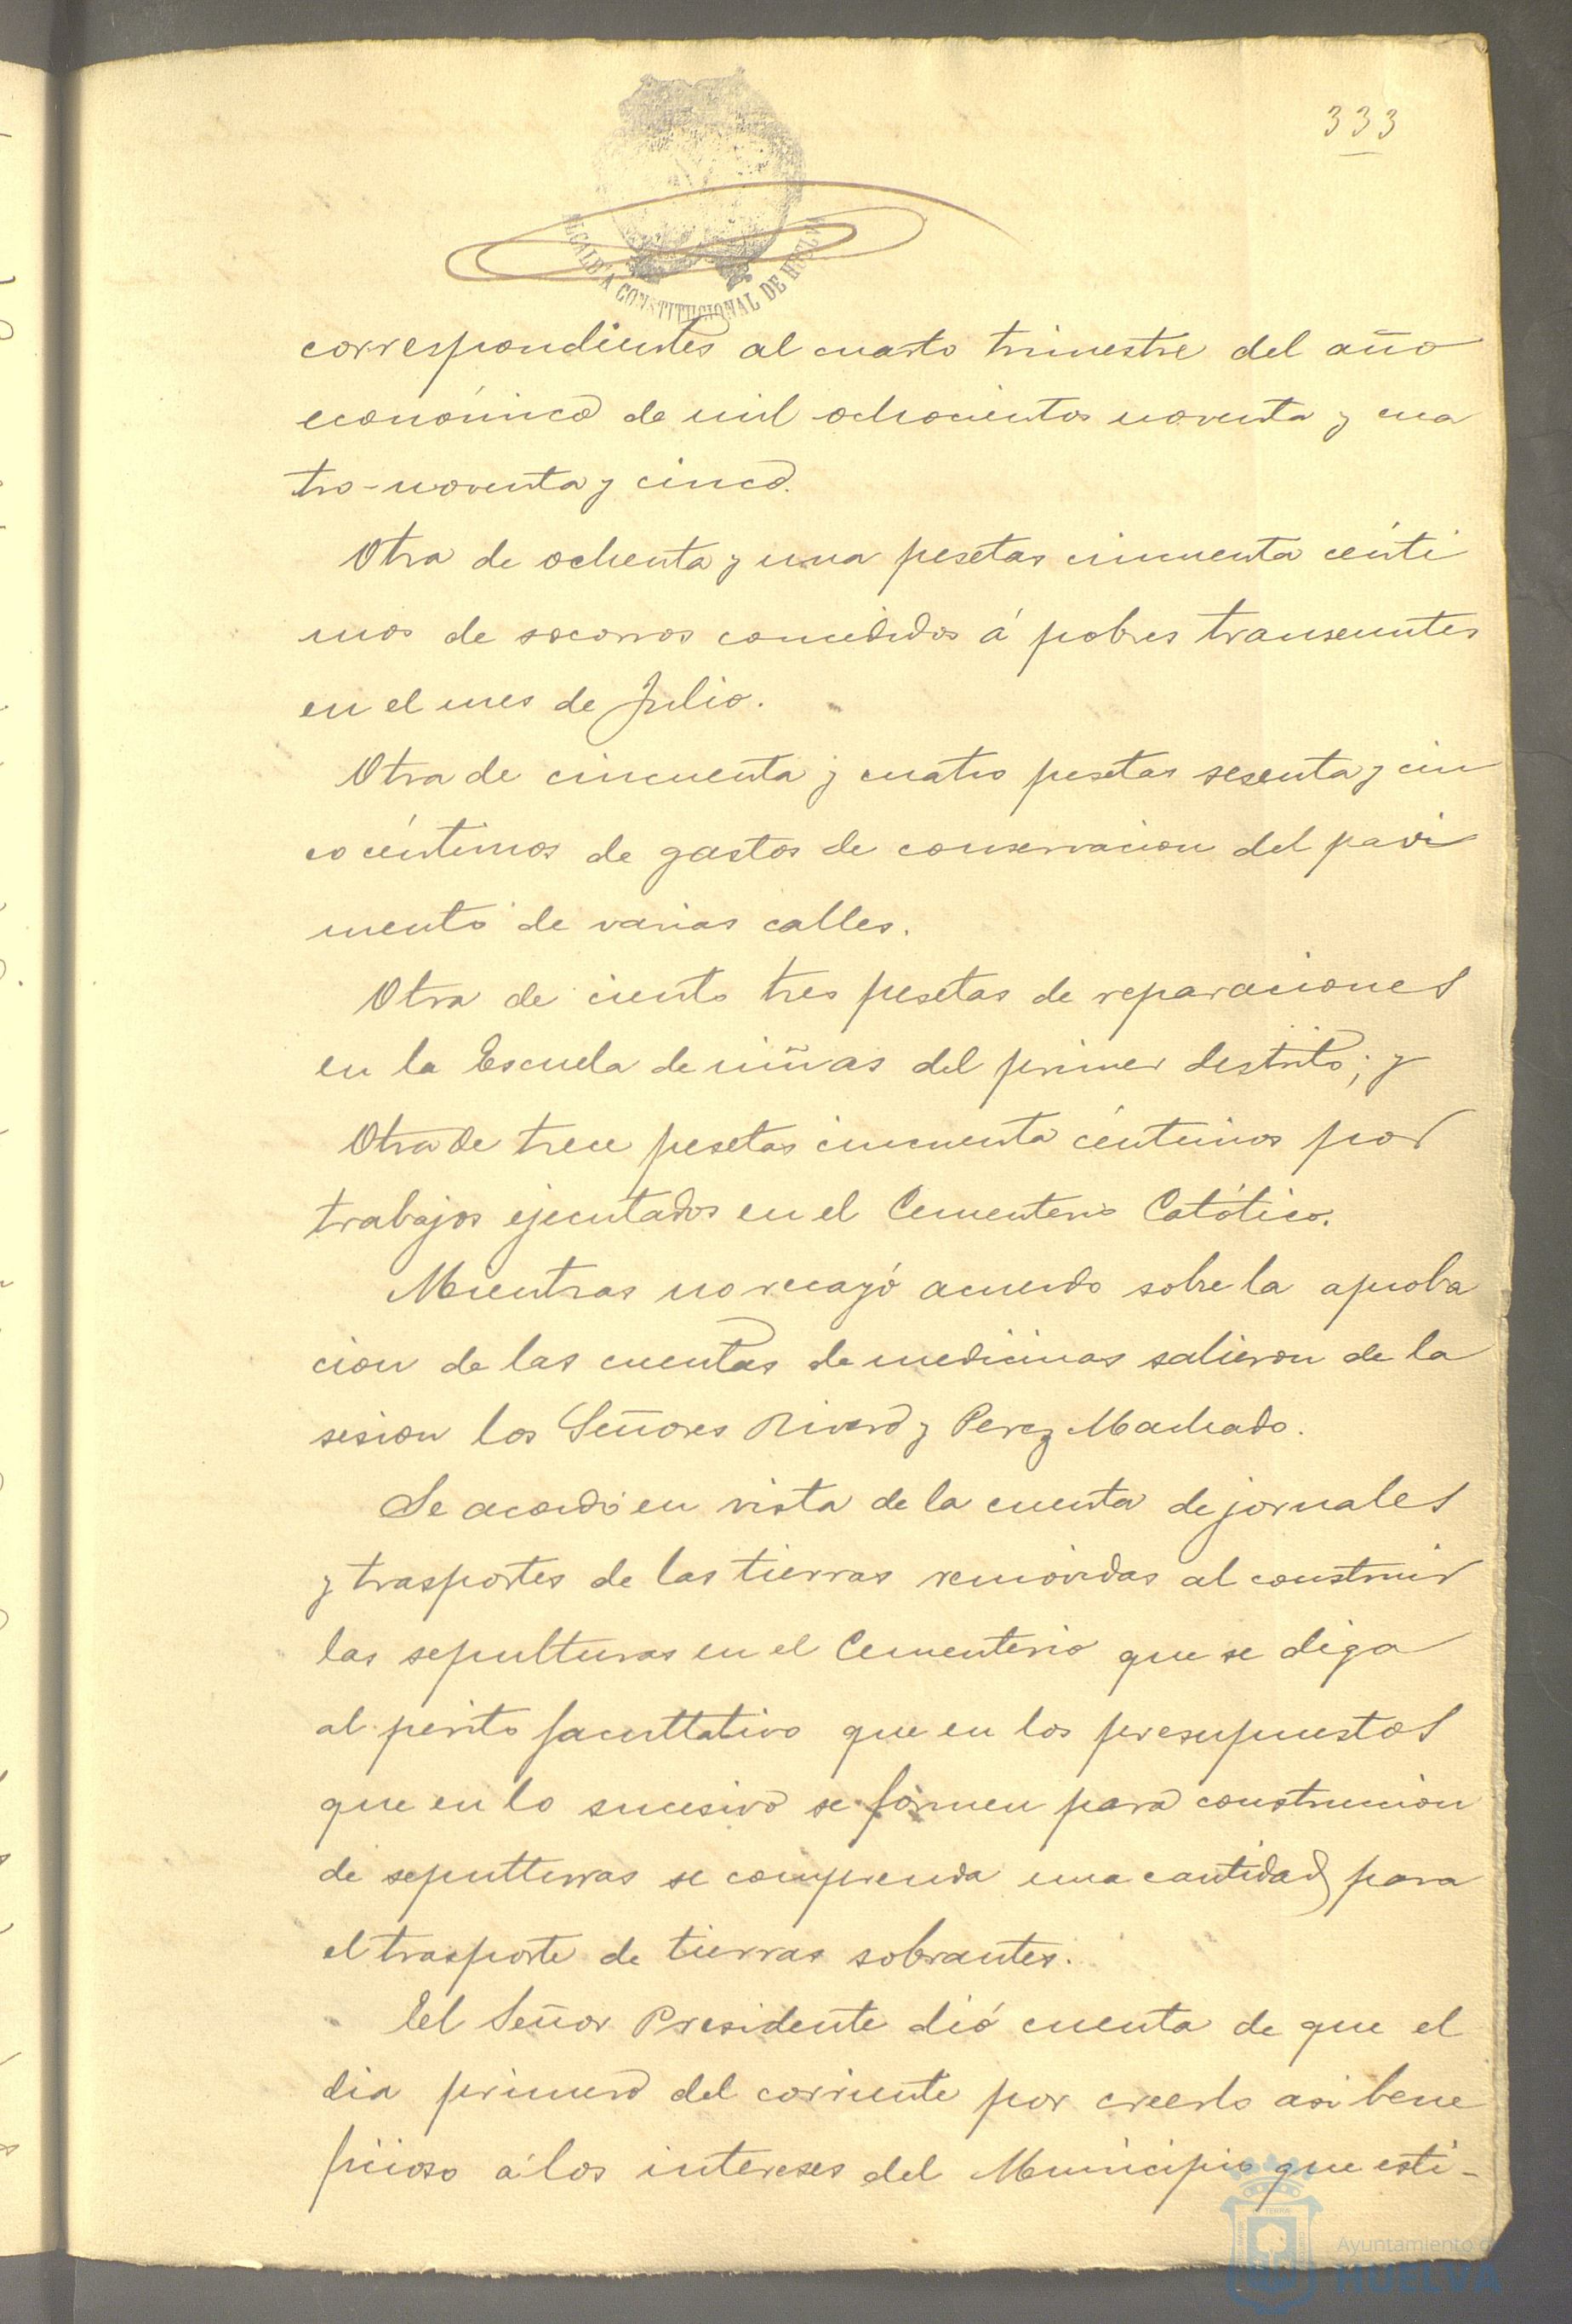 333
ALCALDÍA CONSTITUCIONAL DE HUELVA
correspondientes al cuarto trimestre del año
económico de mil ochocientos noventa y cua
tro-noventa y cinco.
Otra de ochenta y una pesetas cincuenta cénti
mos de socorros concedidos á pobres transeuntes
en el mes de Julio.
Otra de cincuenta y cuatro pesetas sesenta y cin
co céntimos de gastos de conservacion del pavi
mento de varias calles.
Otra de ciento tres pesetas de reparaciones
en la Escuela de niñas del primer destrito; y
Otra de trece pesetas cincuenta céntimos por
trabajos ejecutados en el Cementerio Católico.
Mientras no recayó acuerdo sobre la aproba
cion de las cuentas de medicinas salieron de la
sesion los Señores Rivero y Perez Machado.
Se acordó en vista de la cuenta de jornales
y trasportes de las tierras removidas al construir
las sepulturas en el Cementerio que se diga
al perito facultativo que en los presupuestos
que en lo sucesivo se formen para construccion
de sepulturas se comprenda una cantidad para
el trasporte de tierras sobrantes.
El Señor Presidente dió cuenta de que el
dia primero del corriente por creerlo asi bene
ficioso á los intereses del Municipio que esti-
Ayuntamiento d
HUELVA